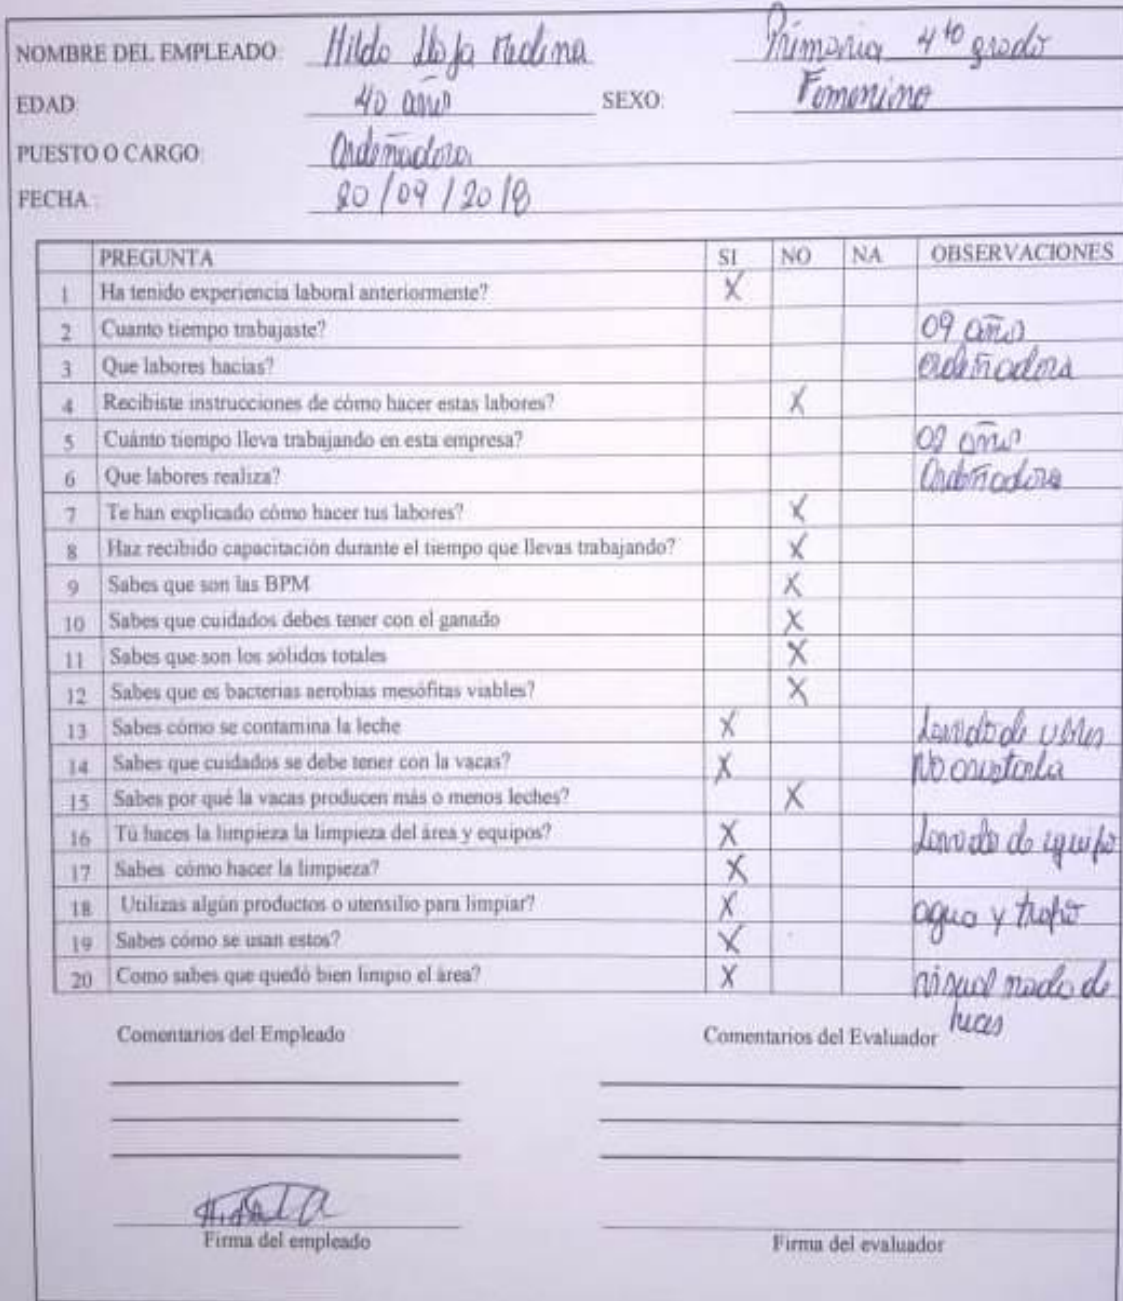 Primaria 4to grado
NOMBRE DEL EMPLEADO: Hilda Medina
EDAD: 40 años SEXO: Femenino
PUESTO O CARGO: Ordeñadora
FECHA: 20/09/2018
PREGUNTA SI NO NA OBSERVACIONES
1 Ha tenido experiencia laboral anteriormente? X
2 Cuanto tiempo trabajaste? 09 año
3 Que labores hacías? Ordeñadora
4 Recibiste instrucciones de cómo hacer estas labores? X
5 Cuánto tiempo lleva trabajando en esta empresa? año
6 Que labores realiza? Ordeñadora
7 Te han explicado cómo hacer tus labores? X
8 Haz recibido capacitación durante el tiempo que llevas trabajando? X
9 Sabes que son las BPM X
10 Sabes que cuidados debes tener con el ganado X
11 Sabes que son los sólidos totales X
12 Sabes que es bacterias aerobias mesófitas viables? X
13 Sabes cómo se contamina la leche X Lavado de ubres
14 Sabes que cuidados se debe tener con la vacas? X No
15 Sabes por qué la vacas producen más o menos leches? X
16 Tú haces la limpieza la limpieza del área y equipos? X Lavado de equipo
17 Sabes cómo hacer la limpieza? X
18 Utilizas algún productos o utensilio para limpiar? X agua y trapo
19 Sabes cómo se usan estos? X
20 Como sabes que quedó bien limpio el área? X visual nada de
heces
Comentarios del Empleado Comentarios del Evaluador
Firma del empleado Firma del evaluador